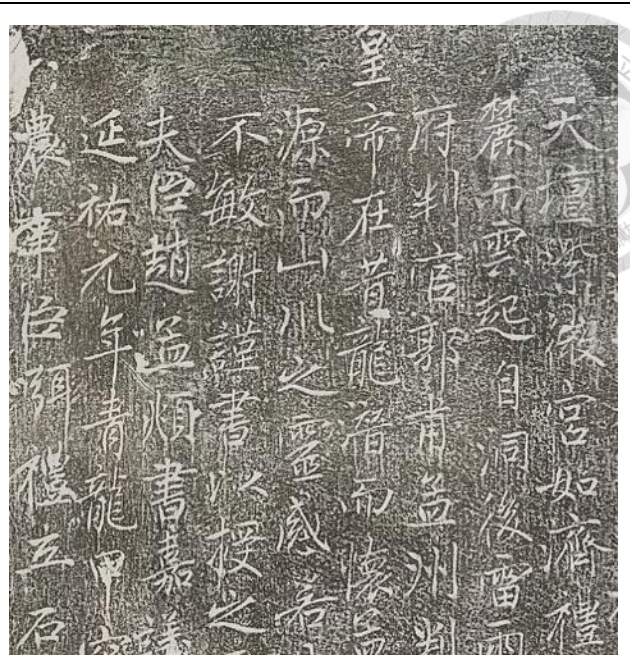 天壇紫微宮如濟禮
麓而雲起自洞後雷雨
府判官郭甫孟州判
皇帝在昔龍潛而懷孟
源而山川之靈感若
不敏謝謹書以授之
夫臣趙孟頫書嘉議
延祐元年青龍甲寅
農事臣 立石